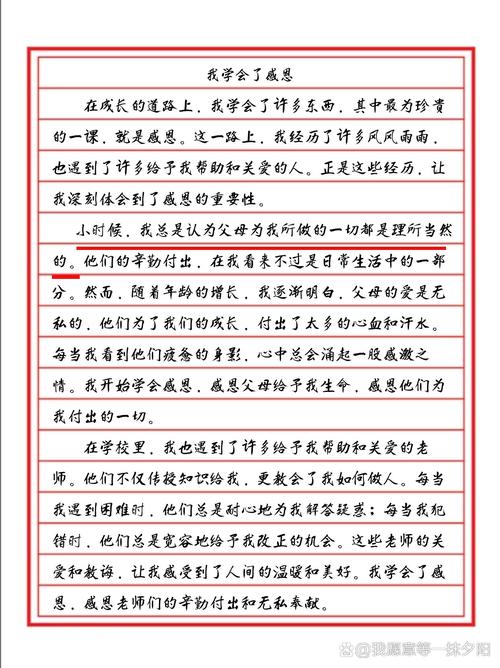 我学会了感恩
在成长的道路上，我学会了许多东西，其中最为珍贵
的一课，就是感恩。这一路上，我经历了许多风风雨雨，
也遇到了许多给予我帮助和关爱的人。正是这些经历，让
我深刻体会到了感恩的重要性。
小时候，我总是认为父母为我所做的一切都是理所当然
的。他们的辛勤付出，在我看来不过是日常生活中的一部
分。然而，随着年龄的增长，我逐渐明白，父母的爱是无
私的，他们为了我们的成长，付出了太多的心血和汗水。
每当我看到他们疲惫的身影，心中总会涌起一股感激之
情。我开始学会感恩，感恩父母给予我生命，感恩他们为
我付出的一切。
在学校里，我也遇到了许多给予我帮助和关爱的老
师。他们不仅传授知识给我，更教会了我如何做人。每当
我遇到困难时，他们总是耐心地为我解答疑惑；每当我犯
错时，他们总是宽容地给予我改正的机会。这些老师的关
爱和教诲，让我感受到了人间的温暖和美好。我学会了感
恩，感恩老师们的辛勤付出和无私奉献。
@我愿意等一抹夕阳